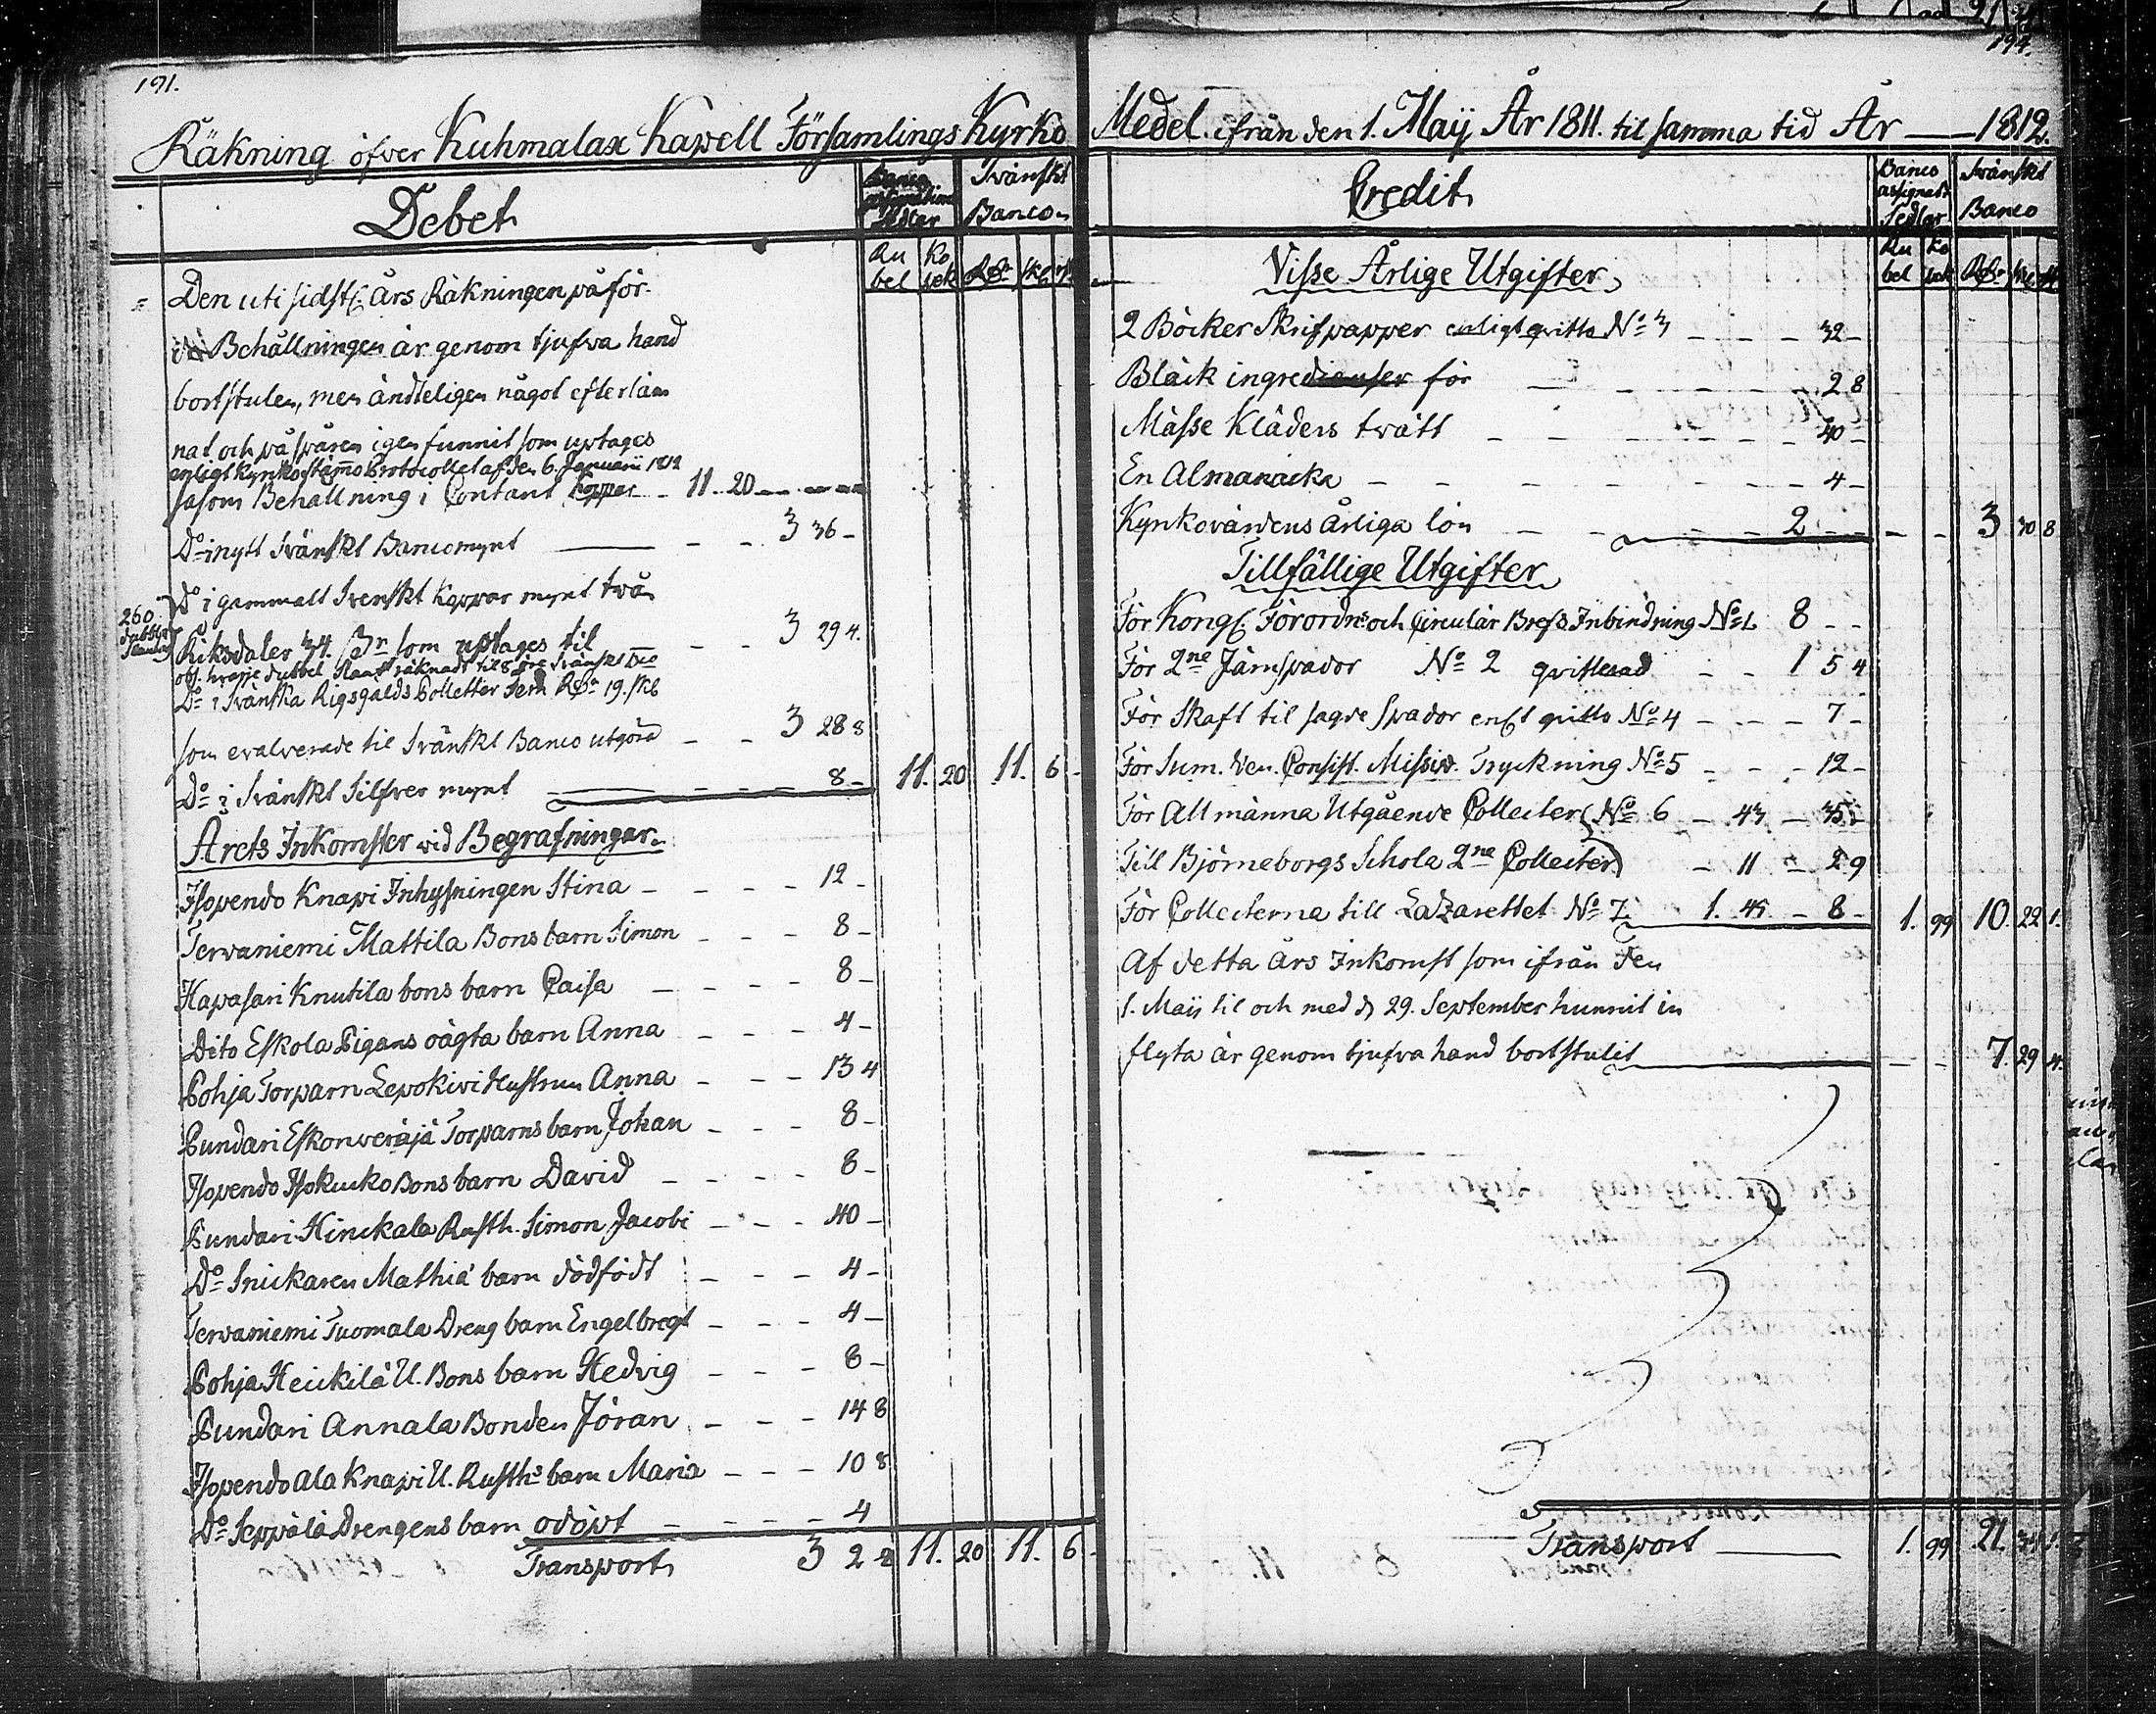 191.
Räkning öfver Kuhmalax Kapell Församlings Kyrko
Debet
Banco assignations Sedlar
Svänskt Banco
Ru bel
Ko pek
Rdr
sk.
Den uti sidstl. års Räkningen påför-
da Behållningen är genom tjufva hand
bortstulen, men ändteligen något efterläm
nat och på spåren igen funnit som uptages
enligt Kyrkostämo Protocollet af den 6. Januarii 1812
såsom Behållning i Contant Koppar - 11. 20
Do i nytt Svänskt Bancomynt - - 3 36 -
Do i gammalt Svenskt Koppar mynt två
260 dubbla slantar
Riksdaler som uptages til - - 3 29 4.
obs. hvarje dubbel Slant räknadt til 8 öre Svänskt
Do i Svänska Rigsgälds Polletter fem Rdr 19. skl
som evalverade til Svänskt Banco utgöra - - 3 28 8
Do i Svänskt Silfver mynt - - - 8 - 11. 20 11. 6 -
Årets Inkomster vid Begrafningar.
Isopendo Knapi Inhysningen Stina - - - - 12 -
Tervaniemi Mattila Bons barn Simon - - - 8 -
Hapasari Knutila bons barn Caisa - - - - 8 -
Dito Eskola Pigans oägta barn Anna - - - 4 -
Pohja Torparn Lepokivi Hustrun Anna - - - 13 4
Pundari Eskonveräjä Torparns barn Johan - - - 8 -
Isopendo Isokucko Bons barn David - - - - 8 -
Pundari Hinckala Rusth. Simon Jacobi - - - 40 -
Do Snickaren Mathiæ barn dödfödt - - - 4 -
Tervaniemi Tuomala Dreng barn Engelbregt - - - 4 -
Pohja Heickilä U. Bons barn Hedvig - - - 8 -
Pundari Annala Bonden Jöran - - - 14 8
Isopendo Ala Knapi U. Rusths barn Maria - - - 10 8
Do Seppälä Drengens barn odöpt - - - - 4
Transport 3 2 8 11. 20 11. 6 -
194.
Medel ifrån den 1. Maÿ År 1811. til samma tid År — 1812.
Credit
Banco assignat. Sedlar
Svänskt Banco
Ru bel
Ko pek
Rdr
sk.
Visse Årlige Utgifter
2 Böcker Skrifpapper enligt qvitto No 3 - - - 32 -
Bläck ingredienser för - - - - 2 8
Mässe Kläders tvätt - - - - 40 -
En Almanacka - - - - 4 -
Kyrkovärdens Årliga lön - - - 2 - - - - 3 30 8
Tillfällige Utgifter
För Kongl. Förordn: och Circulär Brefs Inbindning No 1. 8 - -
För 2ne Järnspador No 2 qvitterad - - 1 5 4
För Skaft til sagde Spador enl. qvitto No 4 - - - 7 -
För Sum. Ven. Consist. Missiv. Tryckning No 5 - - - 12 -
För Allmänna Utgående Collecter No 6 - 43 - 35
Till Björneborgs Schola 2ne Collecter - 11 - 29
För Collecterna till Lazarettet No 7. 1. 45 - 8 - 1. 99 10. 22 1.
Af detta års Inkomst som ifrån den
1. Maij til och med d 29. September hunnit in
flyta är genom tjufva hand bortstulit - - 7. 29 4.
Transport — 1. 99 21.